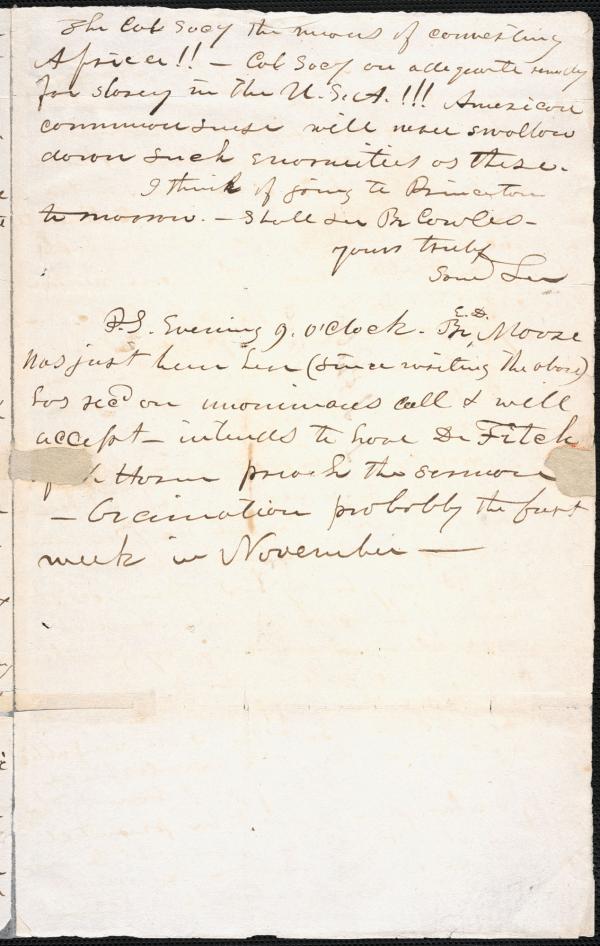 The Col Socy the means of converting
Africa!! — Col Socy an adequate remedy
for slavery in the U.S.A.!!! American
common sense will never swallow
down such enormities as these.
I think of going to Princeton
to morrow. — Shall see Br Cowles —
yours truly
Saml Lee
P.S. Evening 9. o'clock. Br, E.D. Moore
has just been here (since writing the above)
has recd an unanimous call & will
accept — intends to have Dr Fitch
Haven preach the sermon
— Ordination probably the first
week in November —